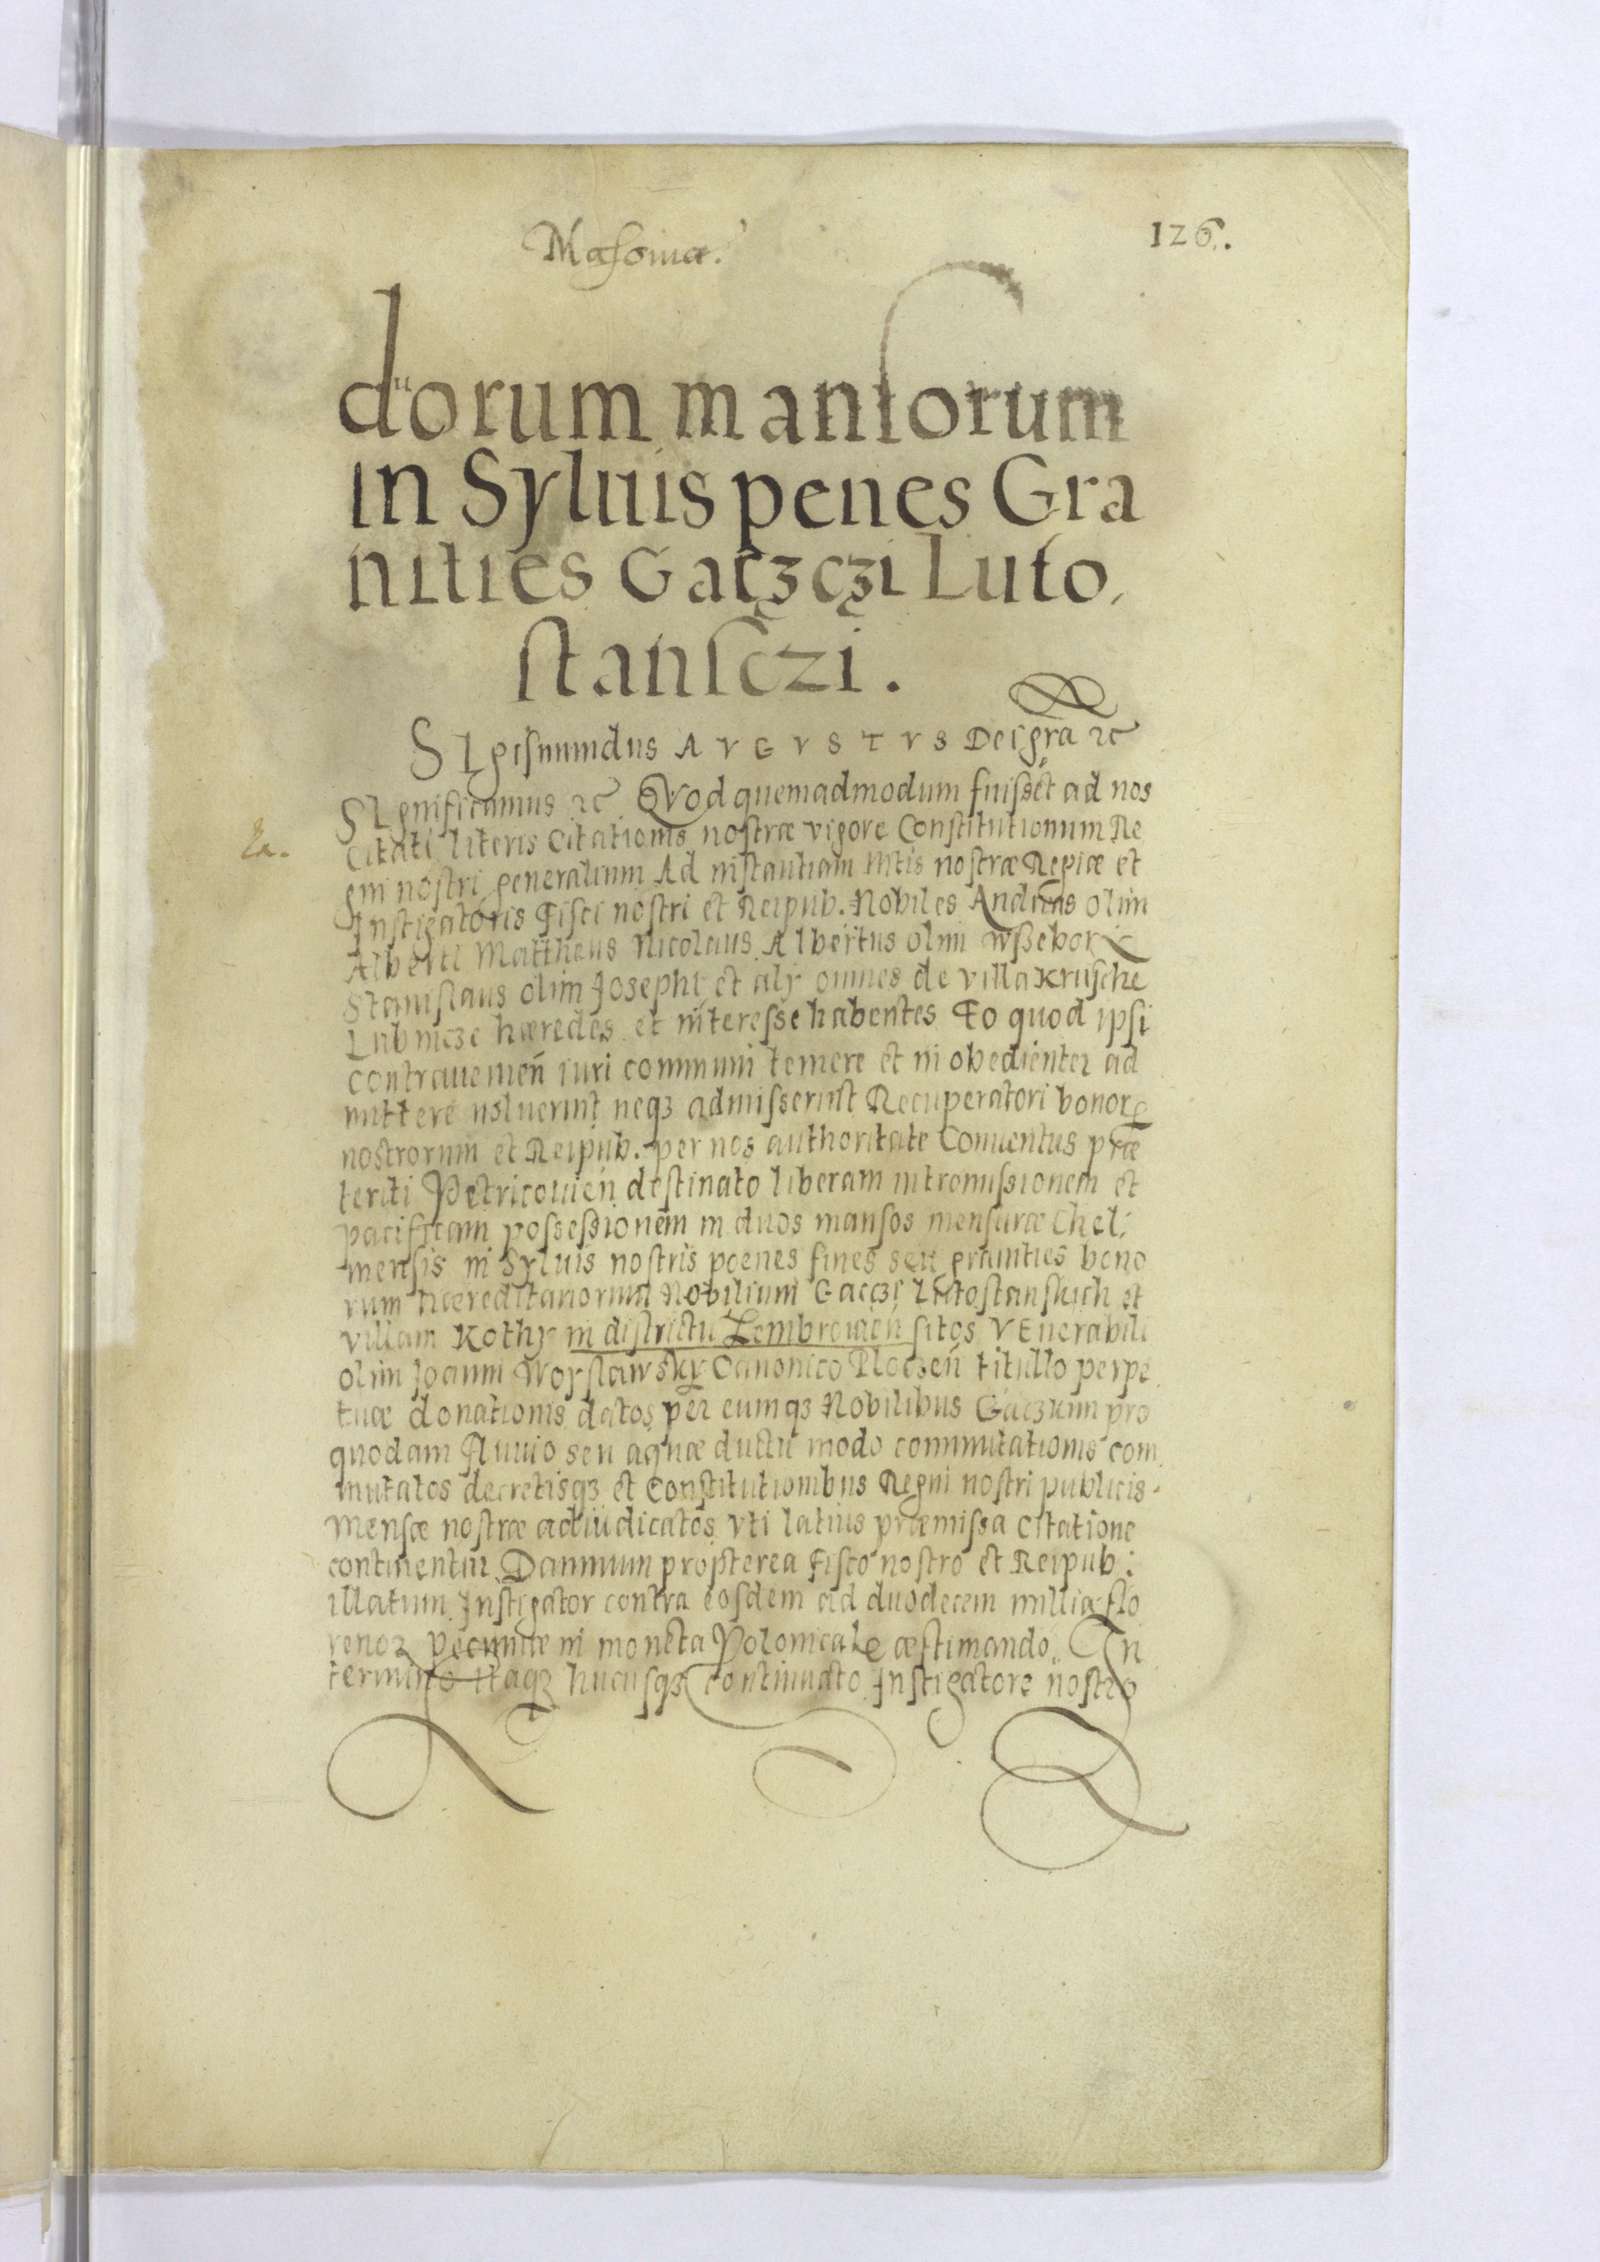 Masouia.
126.
duorum mansorum
in Syluis penes Gra
nities Gaczczi Luto,
stansczi.
SIgismundus AVGVSTVS Dei gra̅ ꝛc
SIgnificamus ꝛc Quod quemadmodum fuisset ad nos
Citati literis Citationis nostræ vigore Constitutionum Re
gni nostri generalium Ad instantiam Mtis nostræ Regiæ et
Instigatoris Fisci nostri et Reipub. Nobiles Andreas olim
Alberti Mattheus Nicolaus Albertus olim wßebor
Stanislaus olim Josephi et alÿ omnes de villa Krusche
Lubnicze hæredes et interesse habentes Eo quod ipsi
contrauenien̄ iuri communi temere et in obedienter ad
mittere noluerint neqꝫ admisserint Recuperatori bonorꝝ
nostrorum et Reipub. per nos authoritate Conuentus præ
teriti Petricouien̄ destinato liberam intromissionem et
pacificam possessionem in duos mansos mensuræ Chel,
mensis in Syluis nostris poenes fines seu granities bono
rum hæreditariorum Nobilium Gaczzi Lutostanskich et
villam Kothy in districtu Zembrouien̄ sitos VEnerabili
olim Joanni Woyslawsky Canonico Plocen̄ titullo perpe
tuæ donationis datos per eumqꝫ Nobilibus Gaczkim pro
quodam fluuio seu aquæ ductu modo commutationis com,
mutatos decretisqꝫ et Constitutionibus Regni nostri publicis
Mensæ nostræ adiudicatos vti latius præmissa citatione
continentur Damnum propterea Fisco nostro et Reipub:
illatum Instigator contra eosdem ad duodecem millia flo
renoꝝ pecuniæ in moneta Polonicale æstimando. In
termino itaqꝫ hucusqꝫ continuato Instigatore nostro